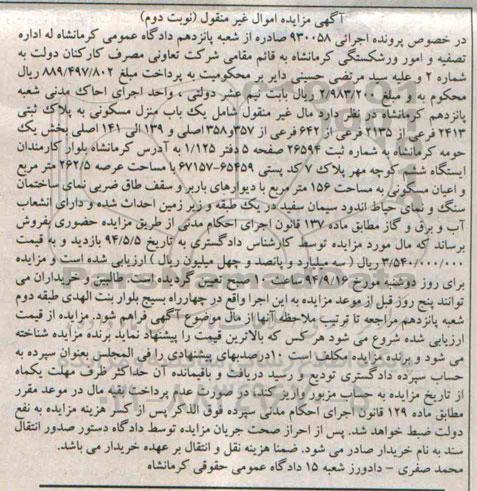 آگهی مزایده اموال غیر منقول (نوبت دوم)
در خصوص پرونده اجرائی ۹۳۰۰۵۸ صادره از شعبه پانزدهم دادگاه عمومی کرمانشاه له اداره
تصفیه و امور ورشکستگی کرمانشاه به قائم مقامی شرکت تعاونی مصرف کارکنان دولت به
شماره ۲ و علیه سید مرتضی حسینی دایر بر محکومیت به پرداخت مبلغ ۸۸۹/۴۹۷/۸۰۲ ریال
محکوم به و مبلغ ۲/۹۸۳/۲۰۰ ریال بابت نیم عشر دولتی ، واحد اجرای احاک مدنی شعبه
پانزدهم کرمانشاه در نظر دارد مال غیر منقول شامل یک باب منزل مسکونی به پلاک ثبتی
۲۴۱۳ فرعی از ۲۱۳۵ فرعی از ۶۴۲ فرعی از ۳۵۷و۳۵۸ اصلی و ۱۳۹ الی ۱۴۱ اصلی بخش یک
حومه کرمانشاه به شماره ثبت ۲۶۵۹۴ صفحه ۵ دفتر ۱/۱۲۵ به آدرس کرمانشاه بلوار کارمندان
ایستگاه ششم کوچه مهر پلاک ۷ کد پستی ۶۵۴۵۹-۶۷۱۵۷ با مساحت عرصه ۲۶۲/۵ متر مربع
و اعیان مسکونی به مساحت ۱۵۶ متر مربع با دیوارهای باربر و سقف طاق ضربی نمای ساختمان
سنگ و نمای حیاط اندود سیمان سفید در یک طبقه و زیر زمین احداث شده و دارای انشعاب
آب و برق و گاز مطابق ماده ۱۳۷ قانون اجرای احکام مدنی از طریق مزایده حضوری بفروش
برساند که مال مورد مزایده توسط کارشناس دادگستری به تاریخ ۹۴/۵/۵ بازدید و به قیمت
۳/۵۴۰/۰۰۰/۰۰۰ ریال ( سه میلیارد و پانصد و چهل میلیون ریال ) ارزیابی شده است و مزایده
برای روز دوشنبه مورخ ۹۴/۹/۱۶ ساعت ۱۰ صبح تعیین گردیده است. طالبین و خریداران می
توانند پنج روز قبل از موعد مزایده به این اجرا واقع در چهارراه بسیج بلوار بنت الهدی طبقه دوم
شعبه پانزدهم مراجعه تا ترتیب ملاحظه آنها از مال موضوع آگهی فراهم شود. مزایده از قیمت
ارزیابی شده شروع می شود هر کس که بالاترین قیمت را پیشنهاد نماید برنده مزایده شناخته
می شود و برنده مزایده مکلف است ۱۰درصدبهای پیشنهادی را فی المجلس بعنوان سپرده به
حساب سپرده دادگستری تودیع و رسید دریافت و باقیمانده آن حداکثر ظرف مهلت یکماه
از تاریخ مزایده به حساب مزبور واریز کند، در صورت عدم پرداخت بقیه مال در موعد مقرر
مطابق ماده ۱۲۹ قانون اجرای احکام مدنی سپرده فوق الذکر پس از کسر هزینه مزایده به نفع
دولت ضبط خواهد شد. پس از احراز صحت جریان مزایده توسط دادگاه دستور صدور انتقال
سند به نام خریدار صادر می شود. ضمنا هزینه نقل و انتقال بر عهده خریدار می باشد.
محمد صفری – دادورز شعبه ۱۵ دادگاه عمومی حقوقی کرمانشاه